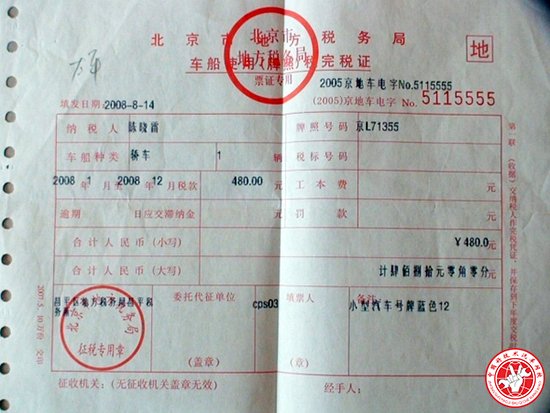 北京市地方税务局
车船使用(牌照)税完税证
地
北京市
地方税务局
票证专用
2005京地车电字No.5115555
(2005)京地车电字 No. 5115555
填发日期2008-8-14
纳税人 陈晓雷 牌照号码 京L71355
车船种类 轿车 1 辆 税标号码
2008年1月至2008年12月税款 480.00元 工本费 元
逾期 日应交滞纳金 元 罚款 元
合计人民币(小写) ￥480.0元
合计人民币(大写) 计肆佰捌拾元零角零分
昌平区地方税务局昌平税务所
委托代征单位 cps03 填票人 备注
小型汽车号牌蓝色12
征税专用章
(盖章) (盖章)
征收机关:(无征收机关盖章无效) 经手人:
第一联(收据)交纳税人作完税凭证,并保存到下年度交税时